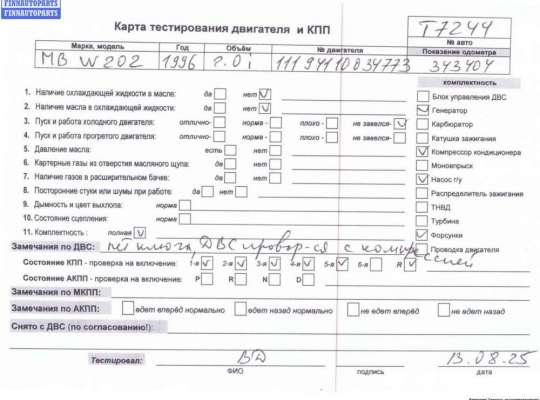 FINNAUTOPARTS
FINNAUTOPARTS
Карта тестирования двигателя и КПП
T7244
№ авто
Марка, модель Год Объём № двигателя Показание одометра
MB W202 1996 2.0i 11194110034773 343404
комплектность
1. Наличие охлаждающей жидкости в масле: да нет
2. Наличие масла в охлаждающей жидкости: да нет
3. Пуск и работа холодного двигателя: отлично- норма - плохо - не завелся-
4. Пуск и работа прогретого двигателя: отлично- норма - плохо - не завелся-
5. Давление масла: есть нет
6. Картерные газы из отверстия масляного щупа: да нет
7. Наличие газов в расширительном бачке: да нет
8. Посторонние стуки или шумы при работе: да нет
9. Дымность и цвет выхлопа: норма
10. Состояние сцепления: норма
11. Комплектность : полная
Блок управления ДВС
Генератор
Карбюратор
Катушка зажигания
Компрессор кондиционера
Моновпрыск
Насос г/у
Распределитель зажигания
ТНВД
Турбина
Форсунки
Проводка двигателя
Замечания по ДВС: нет ключа, ДВС провор-ся с компрессией
Состояние КПП - проверка на включение: 1-я 2-я 3-я 4-я 5-я 6-я R
Состояние АКПП - проверка на включение: P R N D
Замечания по МКПП:
Замечания по АКПП: едет вперёд нормально едет назад нормально не едет вперёд не едет назад
Снято с ДВС (по согласованию!):
Тестировал: ВД 13.08.25
ФИО подпись дата